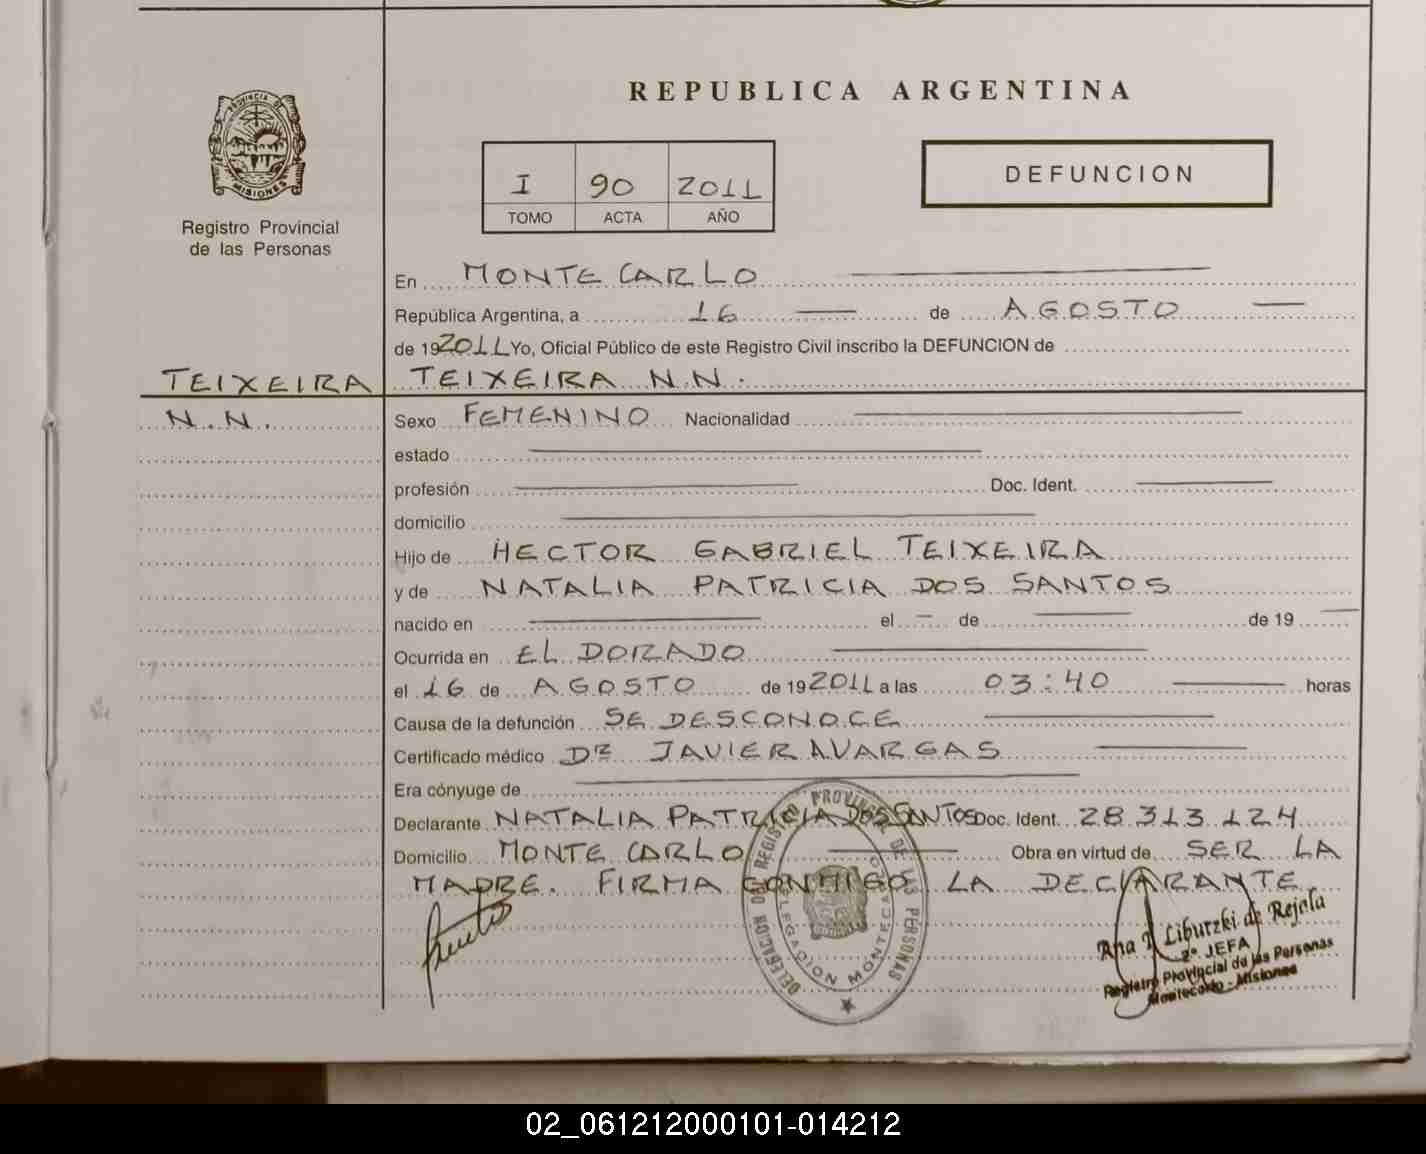 REPUBLICA ARGENTINA
PROVINCIA DE
MISIONES
Registro Provincial
de las Personas
I 90 2011
TOMO ACTA AÑO
DEFUNCION
En MONTE CARLO
República Argentina, a 16 de AGOSTO
de 192011 Yo, Oficial Público de este Registro Civil inscribo la DEFUNCION de
TEIXEIRA TEIXEIRA N.N.
N.N. Sexo FEMENINO Nacionalidad
estado
profesión Doc. Ident.
domicilio
Hijo de HECTOR GABRIEL TEIXEIRA
y de NATALIA PATRICIA DOS SANTOS
nacido en el de de 19
Ocurrida en ELDORADO
el 16 de AGOSTO de 192011 a las 03:40 horas
Causa de la defunción SE DESCONOCE
Certificado médico DR JAVIER A VARGAS
Era cónyuge de
Declarante NATALIA PATRICIA DOS SANTOS Doc. Ident. 28 313 124
Domicilio MONTE CARLO Obra en virtud de SER LA
MADRE. FIRMA CONMIGO LA DECLARANTE
DELEGACION DE REGISTRO PROVINCIAL DE LAS PERSONAS
DELEGACION MONTECARLO
Libutzki de Rejala
2ª JEFA
Registro Provincial de las Personas
Montecarlo - Misiones
02_061212000101-014212